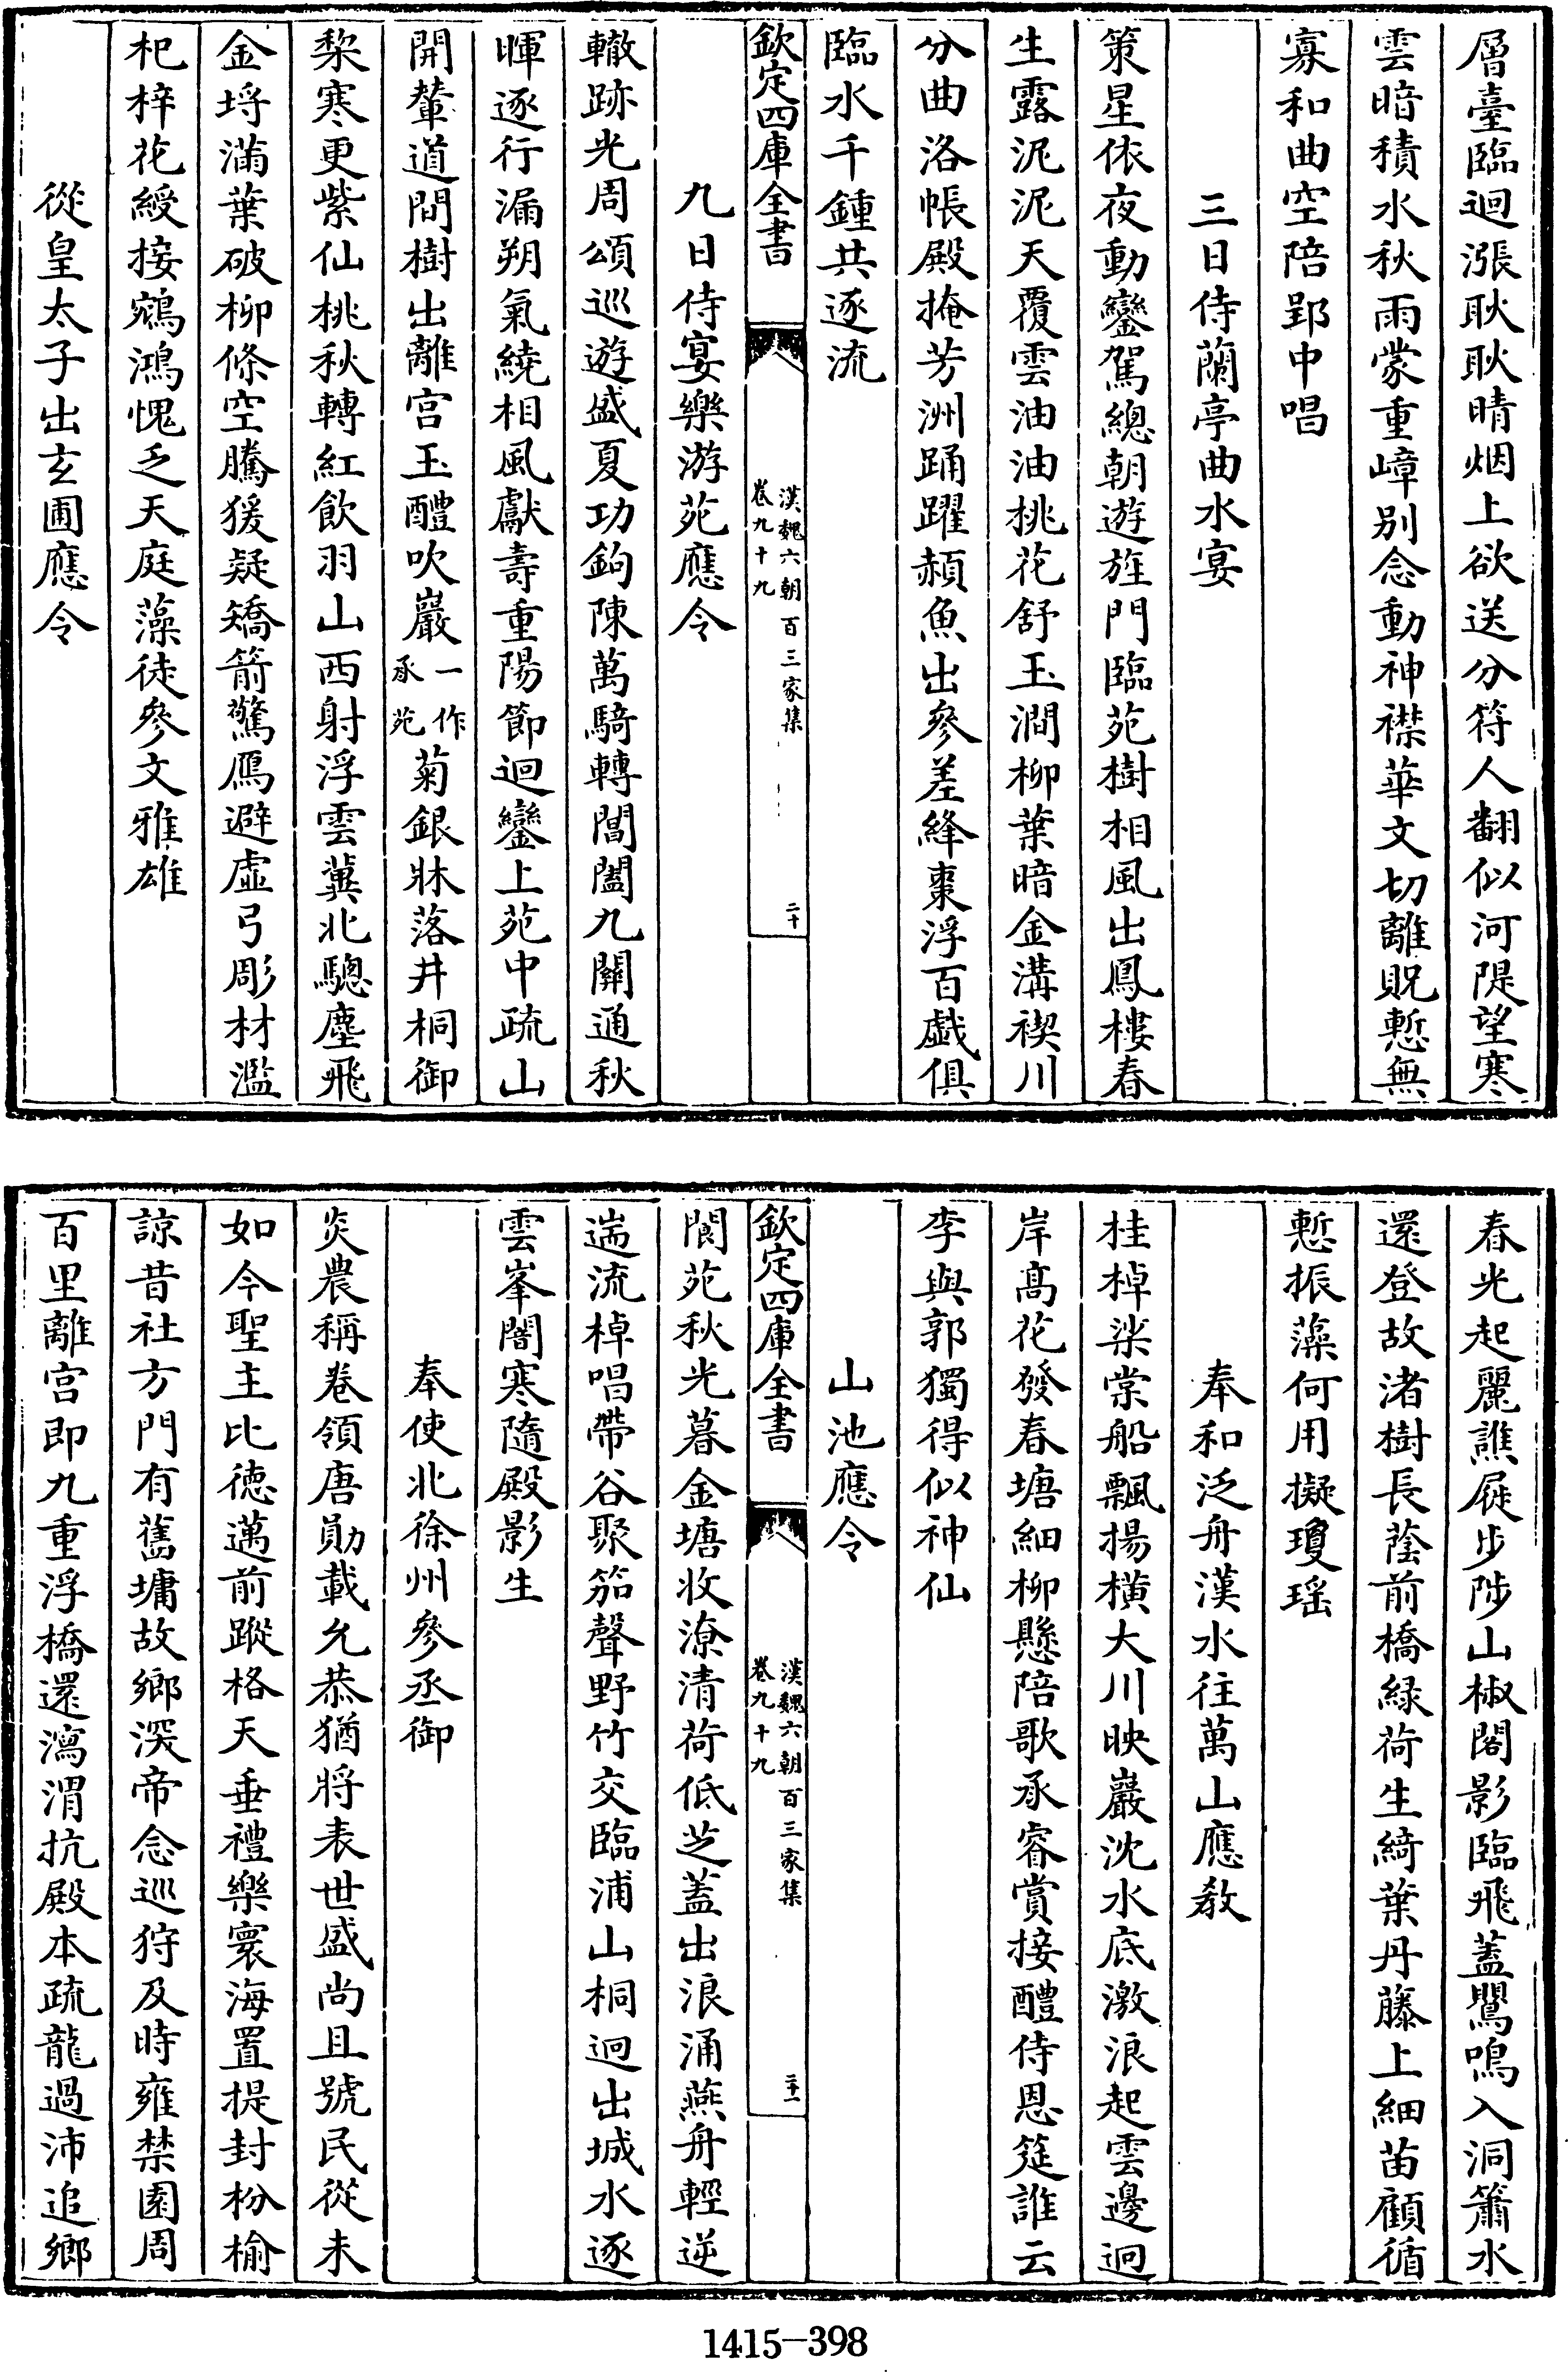 層臺臨迴漲耿耿晴烟上欲送分符人翻似河隄望寒
雲暗積水秋雨蒙重嶂别念動神襟華文切離貺慙無
寡和曲空陪郢中唱
三日侍蘭亭曲水宴
策星依夜動鑾駕總朝遊旌門臨苑樹相風出鳳樓春
生露泥泥天覆雲油油桃花舒玉澗柳葉暗金溝禊川
分曲洛帳殿掩芳洲踊躍頳魚出參差絳棗浮百戯俱
臨水千鍾共逐流
欽定四庫全書
漢魏六朝百三家集
卷九十九
二十
九日侍宴樂游苑應令
轍跡光周頌巡遊盛夏功鉤陳萬騎轉閶闔九關通秋
暉逐行漏朔氣繞相風獻壽重陽節迴鑾上苑中疏山
開輦道間樹出離宫玉醴吹巖一作承苑菊銀牀落井桐御
棃寒更紫仙桃秋轉紅飲羽山西射浮雲冀北驄塵飛
金埒滿葉破柳條空騰猨疑矯箭驚鴈避虚弓彫材濫
杞梓花綬接鵷鴻愧乏天庭藻徒參文雅雄
從皇太子出玄圃應令
春光起麗譙屣步陟山椒閣影臨飛蓋鸎鳴入洞簫水
還登故渚樹長蔭前橋緑荷生綺葉丹藤上細苗顧循
慙振藻何用擬瓊瑶
奉和泛舟漢水往萬山應教
桂棹桬棠船飄揚横大川映巖沈水底激浪起雲邊迥
岸髙花發春塘細柳懸陪歌承睿賞接醴侍恩筵誰云
李與郭獨得似神仙
山池應令
欽定四庫全書
漢魏六朝百三家集
卷九十九
二十一
閬苑秋光暮金塘收潦清荷低芝蓋出浪涌燕舟輕逆
遄流棹唱帶谷聚笳聲野竹交臨浦山桐迥出城水逐
雲峯闇寒隨殿影生
奉使北徐州參丞御
炎農稱卷領唐勛載允恭猶將表世盛尚且號民從未
如今聖主比德邁前蹤格天垂禮樂寰海置提封枌榆
諒昔社方門有舊墉故鄉深帝念巡狩及時雍禁園周
百里離宫即九重浮橋還瀉渭抗殿本疏龍過沛追鄉
1415-398